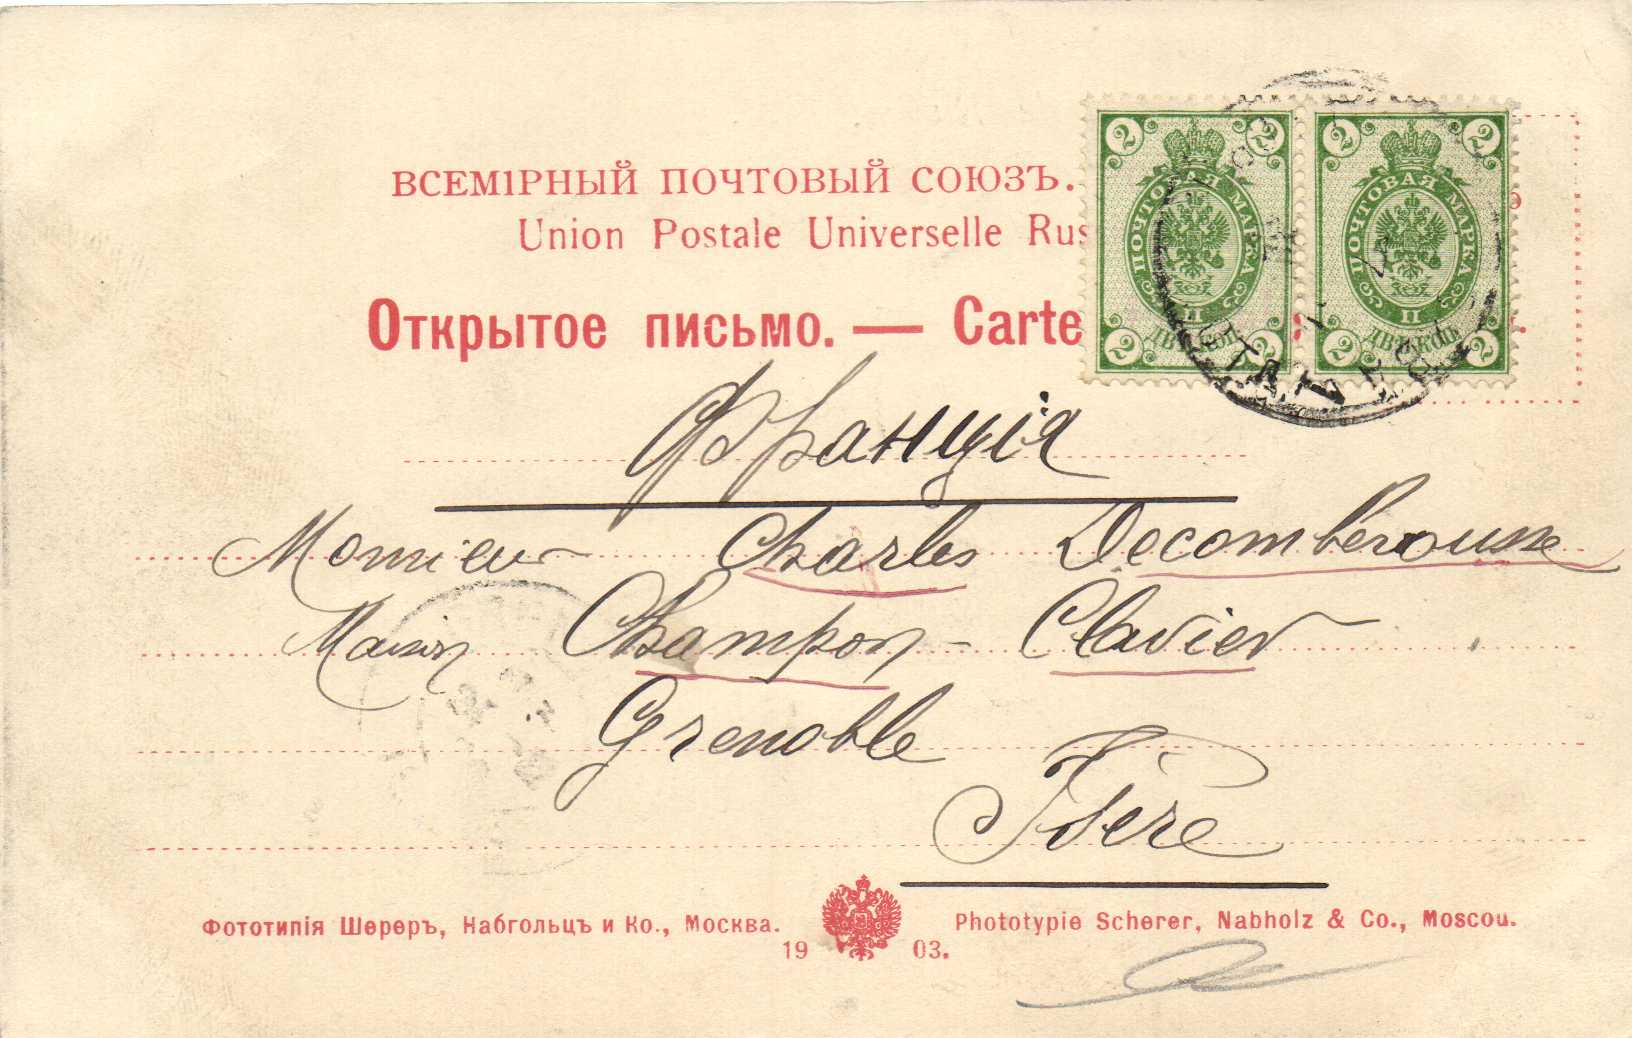 ВСЕМІРНЫЙ ПОЧТОВЫЙ СОЮЗЪ.
Union Postale Universelle Rus
Открытое письмо. — Carte
2 2 2 2
ПОЧТОВАЯ МАРКА ПОЧТОВАЯ МАРКА
II II
2 ДВѢ КОП. 2 2 ДВѢ КОП. 2
Франція
Monsieur Charles Decomberousse
Maison Champon - Clavier
Grenoble
Isère
Фототипія Шереръ, Набгольцъ и Ко., Москва.
Phototypie Scherer, Nabholz & Co., Moscou.
19 03.